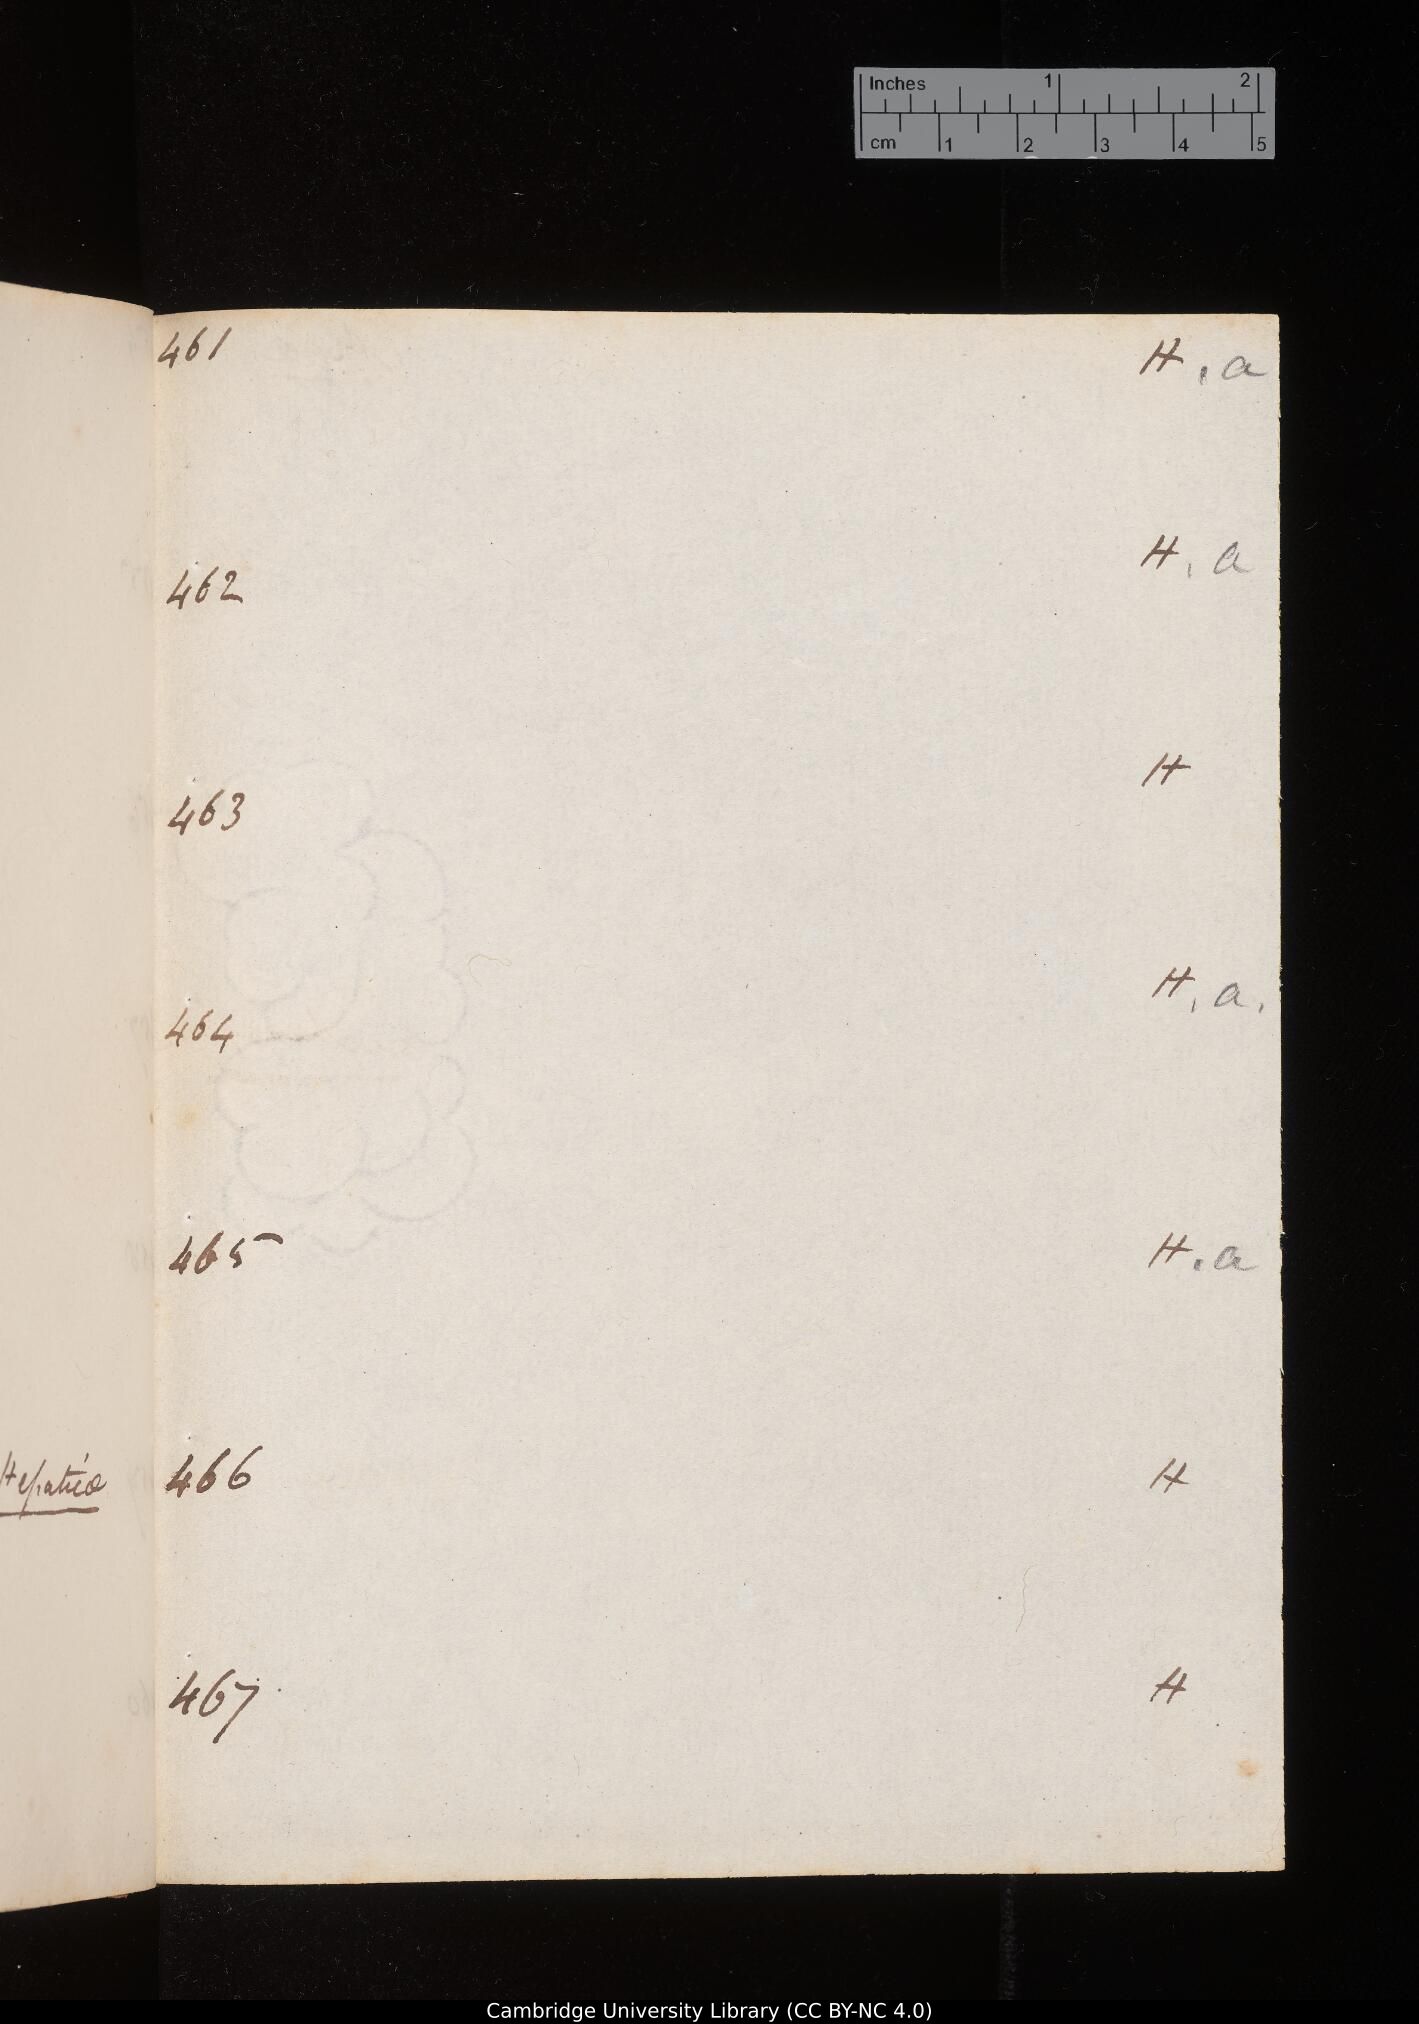 Inches 1 2
cm 1 2 3 4 5
461 H . a
462 H , a
463 H
464 H , a .
465 H . a
Hepaticæ
466 H
467 H
Cambridge University Library (CC BY-NC 4.0)